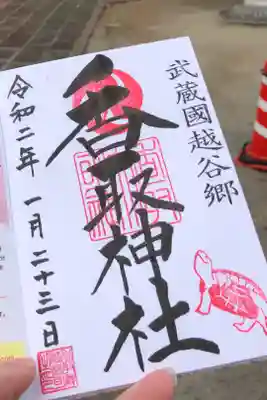 武蔵國越谷郷
香取神社
令和二年 一月二十三日